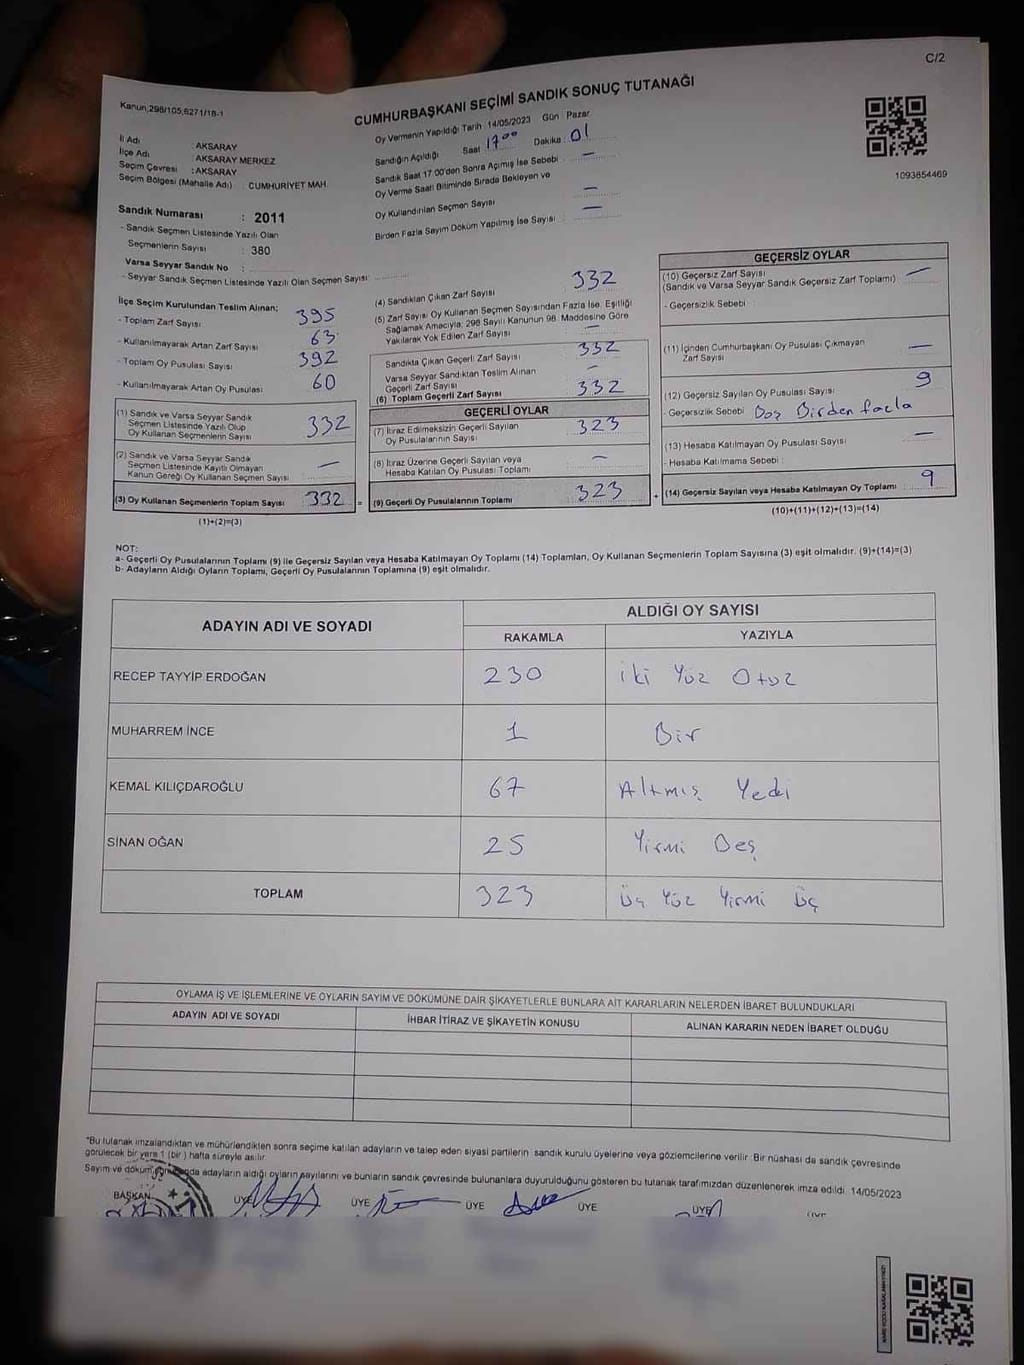 C/2
Kanun,298/105,6271/18-1
CUMHURBAŞKANI SEÇİMİ SANDIK SONUÇ TUTANAĞI
Oy Vermenin Yapıldığı Tarih : 14/05/2023 Gün : Pazar
Sandığın Açıldığı Saat 17 00 Dakika : 01
Sandık Saat 17.00'den Sonra Açımış İse Sebebi —
Oy Verme Saati Bitiminde Sırada Bekleyen ve
Oy Kullandırılan Seçmen Sayısı —
Birden Fazla Sayım Döküm Yapılmış İse Sayısı : —
İl Adı : AKSARAY
İlçe Adı : AKSARAY MERKEZ
Seçim Çevresi : AKSARAY
Seçim Bölgesi (Mahalle Adı) : CUMHURİYET MAH.
1093854469
Sandık Numarası : 2011
- Sandık Seçmen Listesinde Yazılı Olan
Seçmenlerin Sayısı : 380
Varsa Seyyar Sandık No :
- Seyyar Sandık Seçmen Listesinde Yazılı Olan Seçmen Sayısı:
İlçe Seçim Kurulundan Teslim Alınan;
- Toplam Zarf Sayısı 395
- Kullanılmayarak Artan Zarf Sayısı 63
- Toplam Oy Pusulası Sayısı 392
- Kullanılmayarak Artan Oy Pusulası 60
(1) Sandık ve Varsa Seyyar Sandık
Seçmen Listesinde Yazılı Olup
Oy Kullanan Seçmenlerin Sayısı 332
(2) Sandık ve Varsa Seyyar Sandık
Seçmen Listesinde Kayıtlı Olmayan
Kanun Gereği Oy Kullanan Seçmen Sayısı —
(3) Oy Kullanan Seçmenlerin Toplam Sayısı 332 =
(1)+(2)=(3)
(4) Sandıktan Çıkan Zarf Sayısı 332
(5) Zarf Sayısı Oy Kullanan Seçmen Sayısından Fazla İse, Eşitliği
Sağlamak Amacıyla, 298 Sayılı Kanunun 98. Maddesine Göre
Yakılarak Yok Edilen Zarf Sayısı —
Sandıkta Çıkan Geçerli Zarf Sayısı 332
Varsa Seyyar Sandıktan Teslim Alınan
Geçerli Zarf Sayısı —
(6) Toplam Geçerli Zarf Sayısı 332
GEÇERLİ OYLAR
(7) İtiraz Edilmeksizin Geçerli Sayılan
Oy Pusulalarının Sayısı 323
(8) İtiraz Üzerine Geçerli Sayılan veya
Hesaba Katılan Oy Pusulası Toplamı —
(9) Geçerli Oy Pusulalarının Toplamı 323 +
GEÇERSİZ OYLAR
(10) Geçersiz Zarf Sayısı —
(Sandık ve Varsa Seyyar Sandık Geçersiz Zarf Toplamı)
- Geçersizlik Sebebi :
(11) İçinden Cumhurbaşkanı Oy Pusulası Çıkmayan
Zarf Sayısı —
(12) Geçersiz Sayılan Oy Pusulası Sayısı 9
- Geçersizlik Sebebi : Boş Birden fazla
(13) Hesaba Katılmayan Oy Pusulası Sayısı —
- Hesaba Katılmama Sebebi :
(14) Geçersiz Sayılan veya Hesaba Katılmayan Oy Toplamı 9
(10)+(11)+(12)+(13)=(14)
NOT:
a- Geçerli Oy Pusulaları Toplamı (9) ile Geçersiz Sayılan veya Hesaba Katılmayan Oy Toplamı (14) Toplamları, Oy Kullanan Seçmenlerin Toplam Sayısına (3) eşit olmalıdır. (9)+(14)=(3)
b- Adayların Aldığı Oyların Toplamı, Geçerli Oy Pusulalarının Toplamına (9) eşit olmalıdır.
ADAYIN ADI VE SOYADI
ALDIĞI OY SAYISI
RAKAMLA YAZIYLA
RECEP TAYYİP ERDOĞAN 230 iki Yüz Otuz
MUHARREM İNCE 1 Bir
KEMAL KILIÇDAROĞLU 67 Altmış Yedi
SİNAN OĞAN 25 Yirmi Beş
TOPLAM 323 Üç Yüz Yirmi Üç
OYLAMA İŞ VE İŞLEMLERİNE VE OYLARIN SAYIM VE DÖKÜMÜNE DAİR ŞİKAYETLERLE BUNLARA AİT KARARLARIN NELERDEN İBARET BULUNDUKLARI
ADAYIN ADI VE SOYADI İHBAR İTİRAZ VE ŞİKAYETİN KONUSU ALINAN KARARIN NEDEN İBARET OLDUĞU
*Bu tutanak imzalandıktan ve mühürlendikten sonra seçime katılan adayların ve talep eden siyasi partilerin sandık kurulu üyelerine veya gözlemcilerine verilir. Bir nüshası da sandık çevresinde
görülecek bir yere 1 (bir) hafta süreyle asılır.
Sayım ve döküm sonunda adayların aldığı oyların sayılarını ve bunların sandık çevresinde bulunanlara duyurulduğunu gösteren bu tutanak tarafımızdan düzenlenerek imza edildi. 14/05/2023
BAŞKAN ÜYE ÜYE ÜYE ÜYE ÜYE